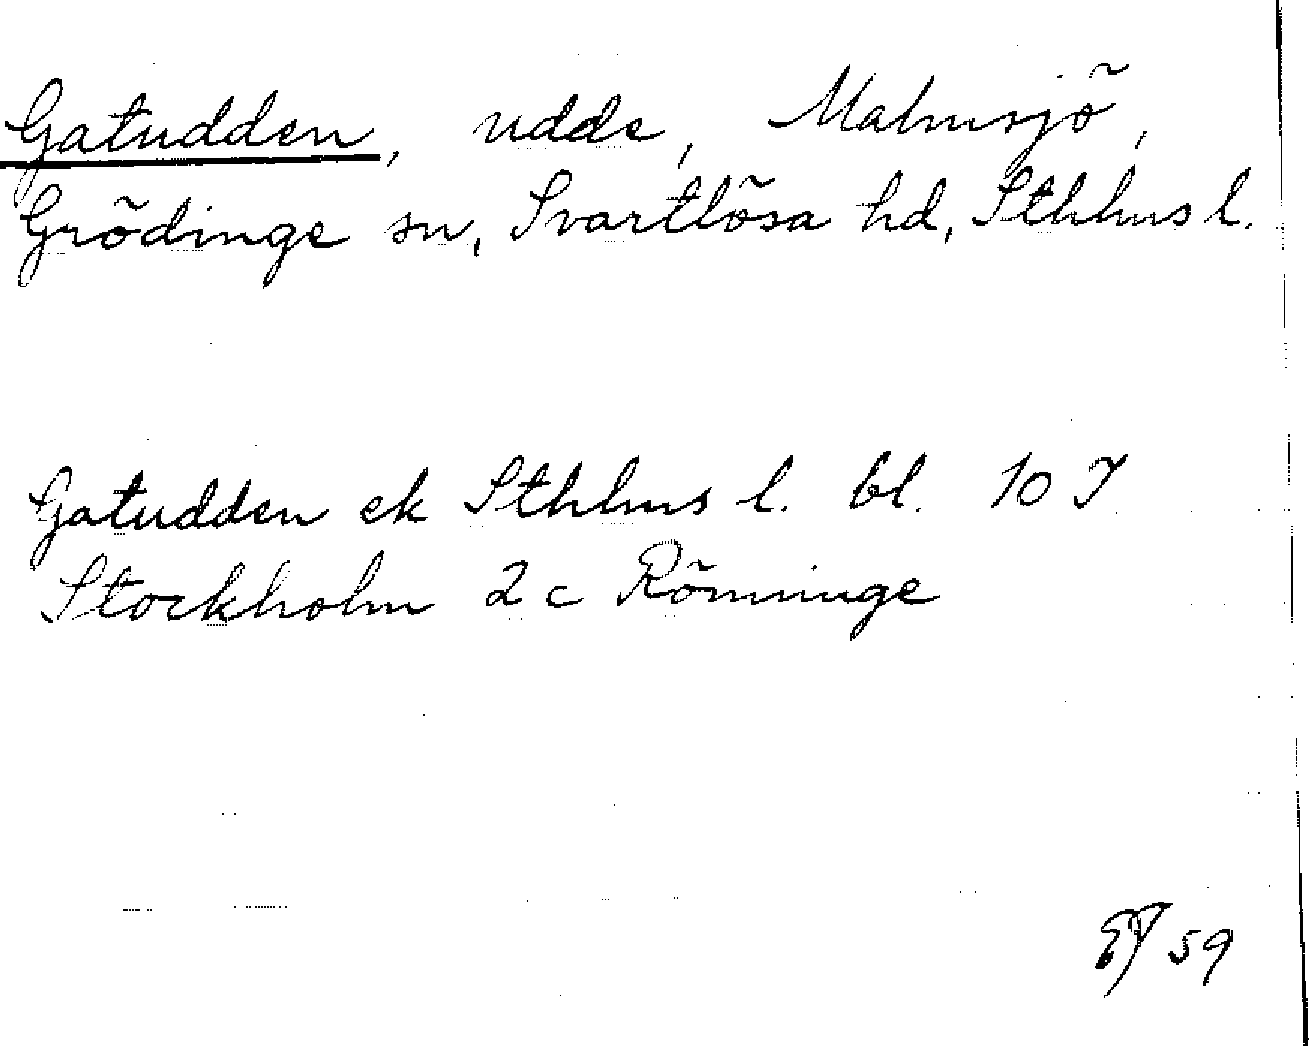 Gatudden, udde, Malmsjö,
Grödinge sn, Svartlösa hd, Sthlms l.
Gatudden ek Sthlms l. bl. 10 I
Stockholm 2c Rönninge
59